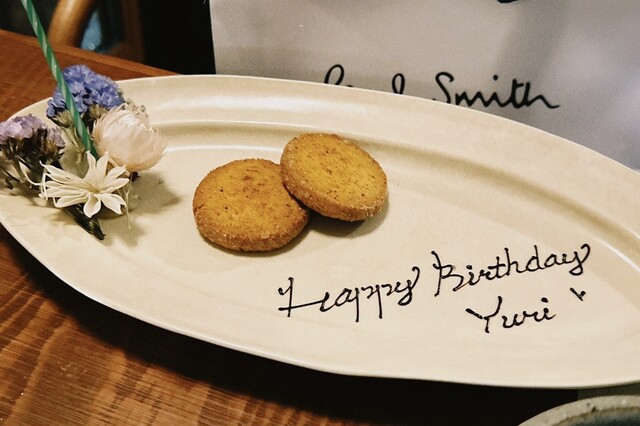 Paul Smith
Happy Birthday
Yuri